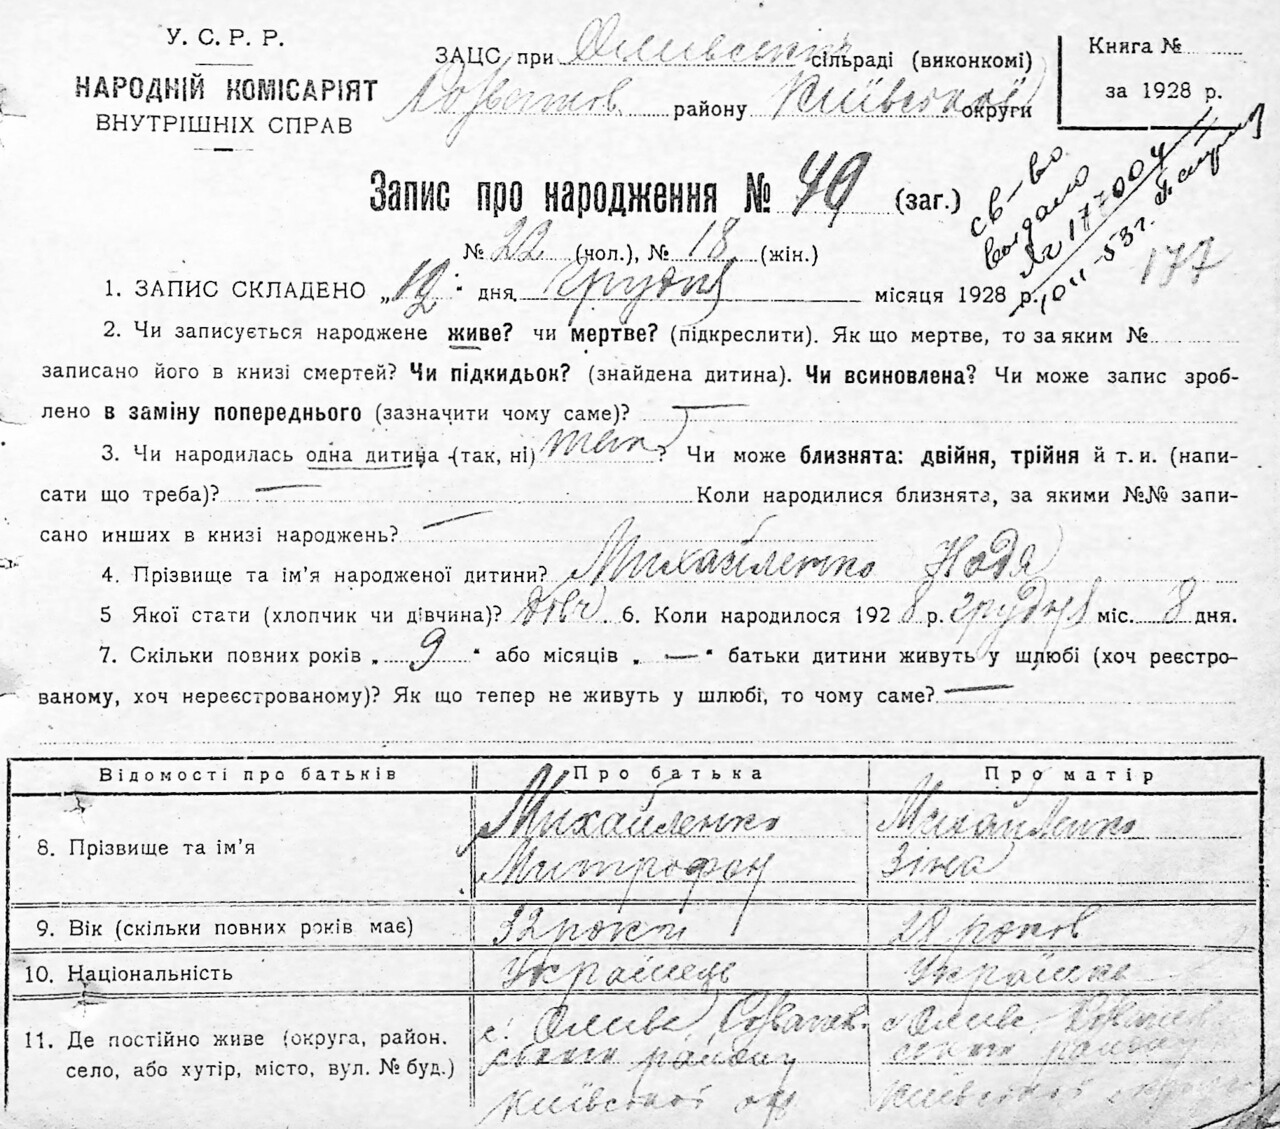 У. С. Р. Р.
НАРОДНІЙ КОМІСАРІЯТ
ВНУТРІШНІХ СПРАВ
ЗАЦС при Оливській сільраді (виконкомі)
Розватнов району Київської округи
Книга №
за 1928 р.
Запис про народження № 49 (заг.)
№ 22 (чол.), № 18 (жін.)
св-во
выдано
177004
10 III-53 г.
177
1. ЗАПИС СКЛАДЕНО „12" дня грудня місяця 1928 р.
2. Чи записується народжене живе? чи мертве? (підкреслити). Як що мертве, то за яким №
записано його в книзі смертей? Чи підкидьок? (знайдена дитина). Чи всиновлена? Чи може запис зроб-
лено в заміну попереднього (зазначити чому саме)? —
3. Чи народилась одна дитина (так, ні) так? Чи може близнята: двійня, трійня й т. и. (напи-
сати що треба)? — Коли народилися близнята, за якими №№ запи-
сано инших в книзі народжень? —
4. Прізвище та ім'я народженої дитини? Михайленко Надя
5 Якої стати (хлопчик чи дівчина)? дівч. 6. Коли народилося 1928 р. грудня міс. 8 дня.
7. Скільки повних років „9" або місяців „—" батьки дитини живуть у шлюбі (хоч реєстро-
ваному, хоч нереєстрованому)? Як що тепер не живуть у шлюбі, то чому саме? —
Відомості про батьків Про батька Про матір
8. Прізвище та ім'я Михайленко Митрофан Михайленко Зіна
9. Вік (скільки повних років має) 32 роки 28 років
10. Національність Українець Українка
11. Де постійно живе (округа, район, село, або хутір, місто, вул. № буд.)
с. Олива Розважів-
ського району
Київської ок
с Олива Розважів
ського району
Київської округи